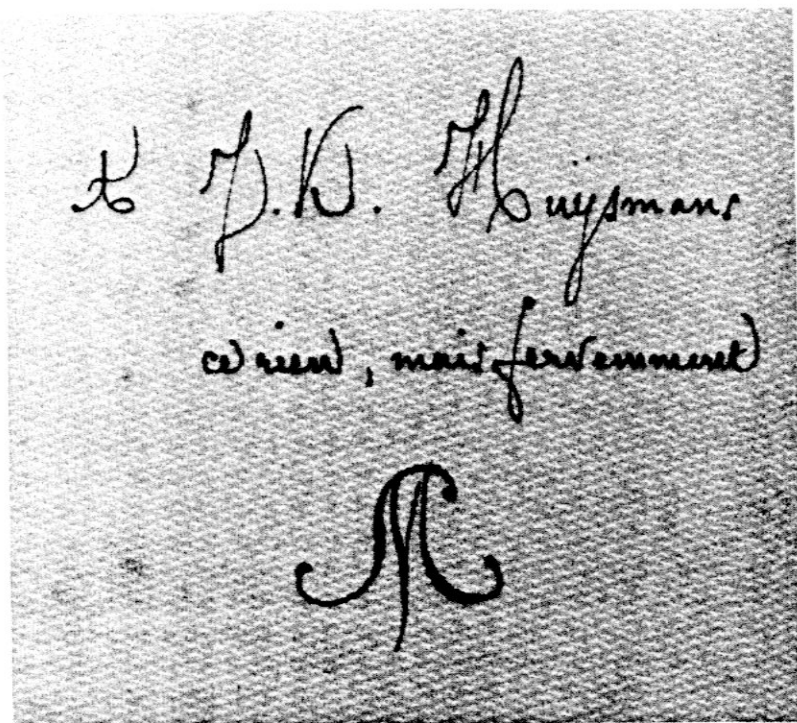 à J.K. Huÿsmans
ce rien, mais fervemment
M